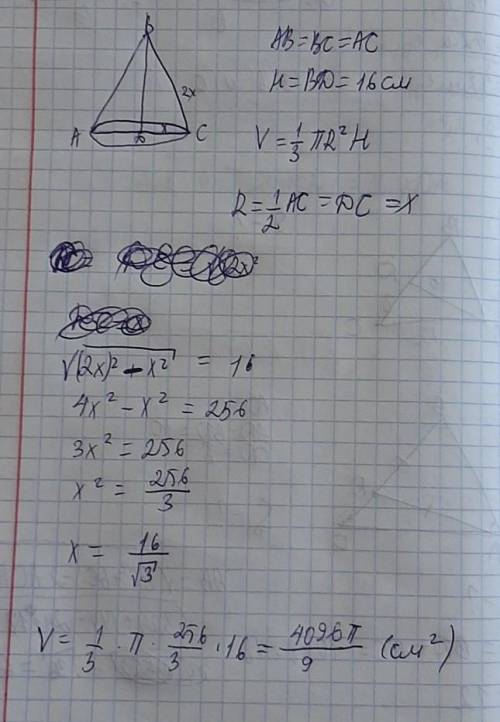 B
AB=BC=AC
H=BD=16см
2x
A D x C
V=1/3 πR²H
R=1/2 AC=DC=x
2x²
√(2x)²-x² = 16
4x²-x²=256
3x²=256
x²=256/3
x=16/√3
V=1/3·π·256/3·16=4096π/9 (см²)